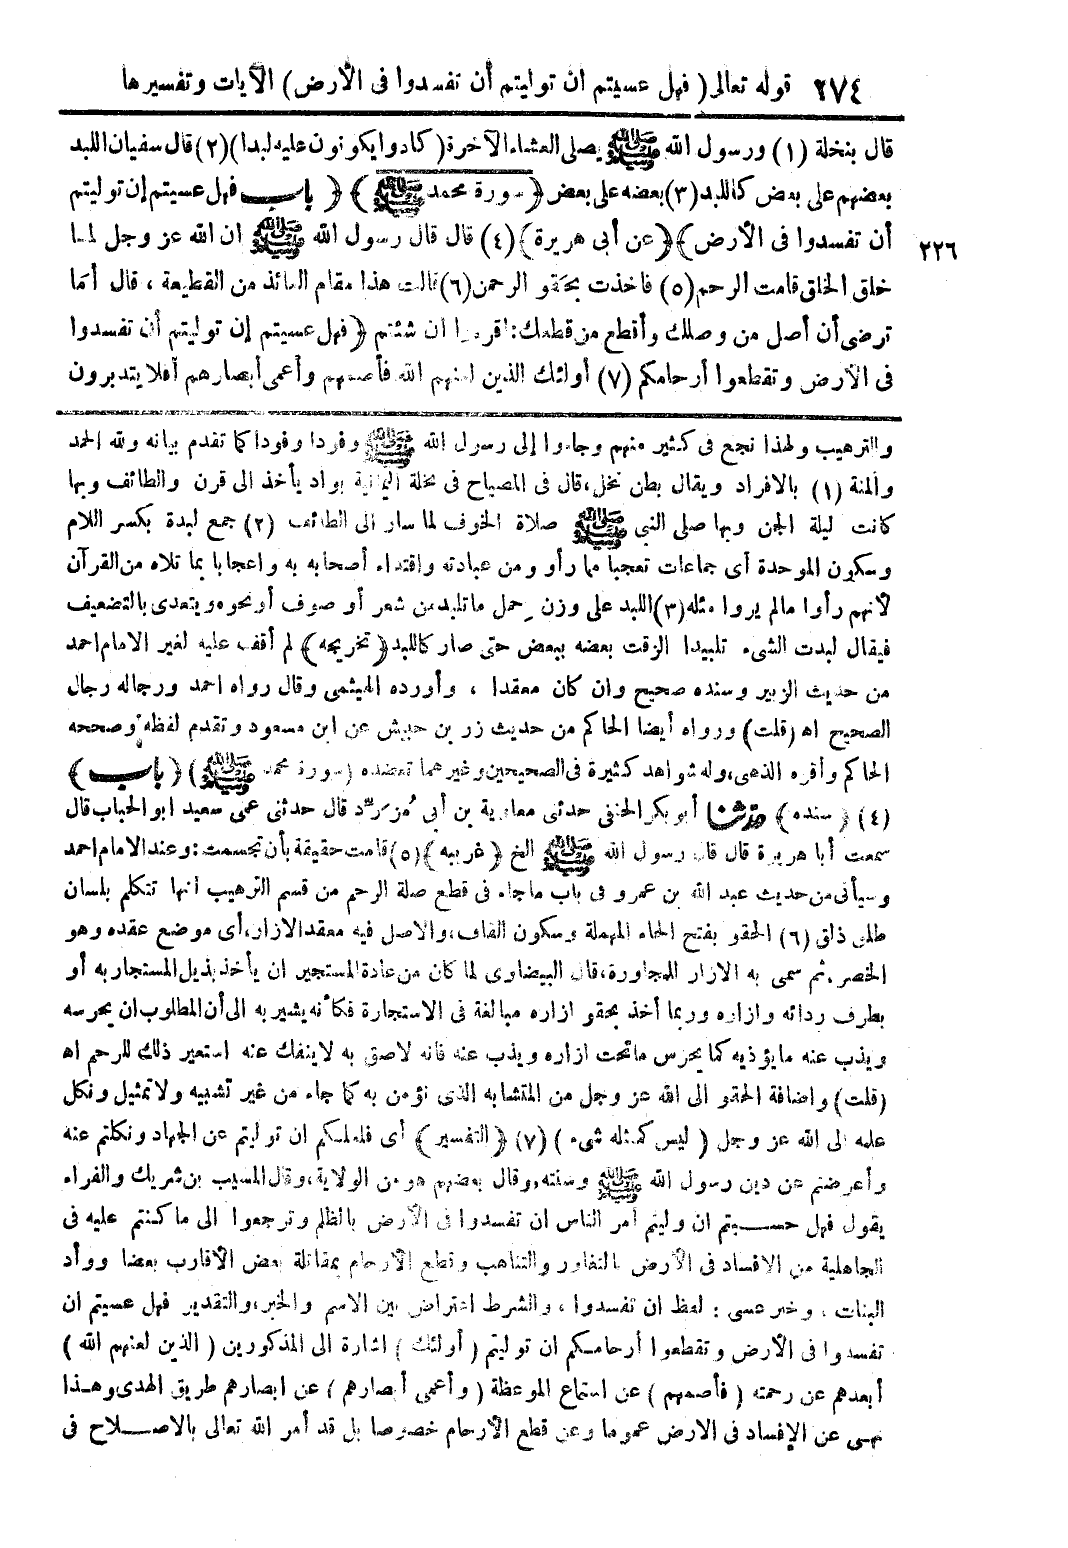 ٢٧٤ قوله تعالى ( فهل عسيتم ان توليتم أن تفسدوا فى الأرض ) الآيات وتفسيرها
قال بنخلة (١) ورسول الله ﷺ يصلى العشاء الآخرة ( كادوا يكونون عليه لبدا )(٢) قال سفيان اللبد
بعضهم على بعض كاللبد (٣) بعضه على بعض ﴿ سورة محمد ﷺ ﴾ ﴿ باب فهل عسيتم إن توليتم
أن تفسدوا فى الأرض ﴾ ﴿ عن أبى هريرة ﴾ (٤) قال قال رسول الله ﷺ ان الله عز وجل لما ٢٢٦
خلق الخلق قامت الرحم (٥) فاخذت بحقو الرحمن (٦) قالت هذا مقام العائذ من القطيعة ، قال أما
ترضى أن أصل من وصلك وأقطع من قطعك: اقرءوا ان شئتم ﴿ فهل عسيتم إن توليتم أن تفسدوا
فى الأرض وتقطعوا أرحامكم (٧) أولئك الذين لعنهم الله فأصمهم وأعمى أبصارهم أفلا يتدبرون
والترهيب ولهذا نجع فى كثير منهم وجاءوا إلى رسول الله ﷺ وفودا وفودا كما تقدم بيانه ولله الحمد
والمنة (١) بالافراد ويقال بطن نخل، قال فى المصباح فى نخلة اليمانية بواد يأخذ الى قرن والطائف وبها
كانت ليلة الجن وبها صلى النبى ﷺ صلاة الخوف لما سار الى الطائف (٢) جمع لبدة بكسر اللام
وسكون الموحدة أى جماعات تعجبا مما رأو ومن عبادته واقتداء أصحابه به واعجابا بما تلاه من القرآن
لأنهم رأوا مالم يروا مثله (٣) اللبد على وزن حمل ماتلبد من شعر أو صوف أو نحوه ويتعدى بالتضعيف
فيقال لبدت الشىء تلبيدا الزقت بعضه ببعض حتى صار كاللبد ﴿ تخريجه ﴾ لم أقف عليه لغير الامام احمد
من حديث الزبير وسنده صحيح وان كان معقدا ، وأورده الهيثمى وقال رواه احمد ورجاله رجال
الصحيح اه (قلت) ورواه أيضا الحاكم من حديث زر بن حبيش عن ابن مسعود وتقدم لفظه وصححه
الحاكم وأقره الذهبى، وله شواهد كثيرة فى الصحيحين وغيرهما تعضده ( سورة محمد ﷺ ) ﴿ باب ﴾
(٤) ﴿ سنده ﴾ حدثنا أبو بكر الحنفى حدثنى معاوية بن أبى مُزَرِّد قال حدثنى عمى سعيد ابو الحباب قال
سمعت أبا هريرة قال قال رسول الله ﷺ الخ ﴿ غريبه ﴾ (٥) قامت حقيقة بأن تجسمت: وعند الامام احمد
وسيأتى من حديث عبد الله بن عمرو فى باب ماجاء فى قطع صلة الرحم من قسم الترهيب انها تتكلم بلسان
طلق ذلق (٦) الحقو بفتح الحاء المهملة وسكون القاف، والاصل فيه معقد الازار، أى موضع عقده وهو
الخصر. ثم سمى به الازار للمجاورة، قال البيضاوى لما كان من عادة المستجير ان يأخذ بذيل المستجار به أو
بطرف ردائه وازاره وربما أخذ بحقو ازاره مبالغة فى الاستجارة فكأنه يشير به الى أن المطلوب ان يحرسه
ويذب عنه مايؤذيه كما يحرس ماتحت ازاره ويذب عنه فانه لاصق به لاينفك عنه استعير ذلك للرحم اه
(قلت) واضافة الحقو الى الله عز وجل من المتشابه الذى نؤمن به كما جاء من غير تشبيه ولا تمثيل ونكل
علمه الى الله عز وجل ( ليس كمثله شىء ) (٧) ﴿ التفسير ﴾ أى فلعلكم ان توليتم عن الجهاد ونكلتم عنه
وأعرضتم عن دين رسول الله ﷺ وسنته، وقال بعضهم هو من الولاية، وقال المسيب بن شريك والفراء
يقول فهل حسبتم ان وليتم أمر الناس ان تفسدوا فى الأرض بالظلم وترجعوا الى ما كنتم عليه فى
الجاهلية من الافساد فى الأرض بالتغاور والتناهب وقطع الأرحام بمقاتلة بعض الأقارب بعضا ووأد
البنات ، وخبر عسى : لفظ ان تفسدوا ، والشرط اعتراض بين الاسم والخبر، والتقدير فهل عسيتم ان
تفسدوا فى الأرض وتقطعوا أرحامكم ان توليتم ( أولئك ) اشارة الى المذكورين ( الذين لعنهم الله )
أبعدهم عن رحمته ( فأصمهم ) عن استماع الموعظة ( وأعمى أبصارهم ) عن ابصارهم طريق الهدى وهذا
نهى عن الإفساد فى الارض عموما وعن قطع الأرحام خصوصا بل قد أمر الله تعالى بالاصلاح فى